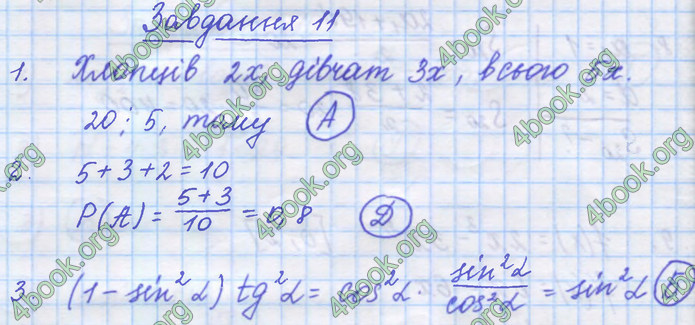 Завдання 11
1. Хлопців 2x, дівчат 3x, всього 5x.
20 ⋮ 5, тому А
2. 5 + 3 + 2 = 10
P(A) = (5 + 3)/10 = 0,8 Д
3 (1 - sin²α) tg²α = cos²α · sin²α/cos²α = sin²α Б
4book.org